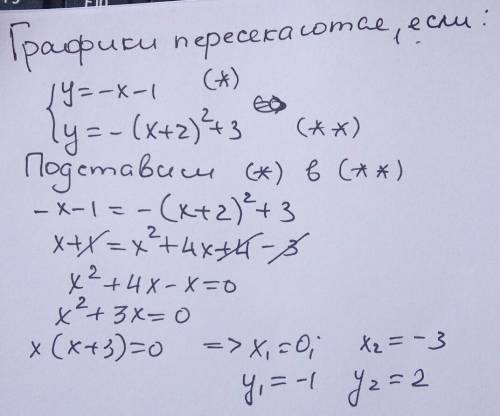 Графики пересекаются, если:
{ y = -x - 1 (*)
y = -(x+2)² + 3 (**)
Подставим (*) в (**)
-x - 1 = -(x+2)² + 3
x + 1 = x² + 4x + 4 - 3
x² + 4x - x = 0
x² + 3x = 0
x(x+3) = 0 => x₁ = 0; x₂ = -3
y₁ = -1 y₂ = 2